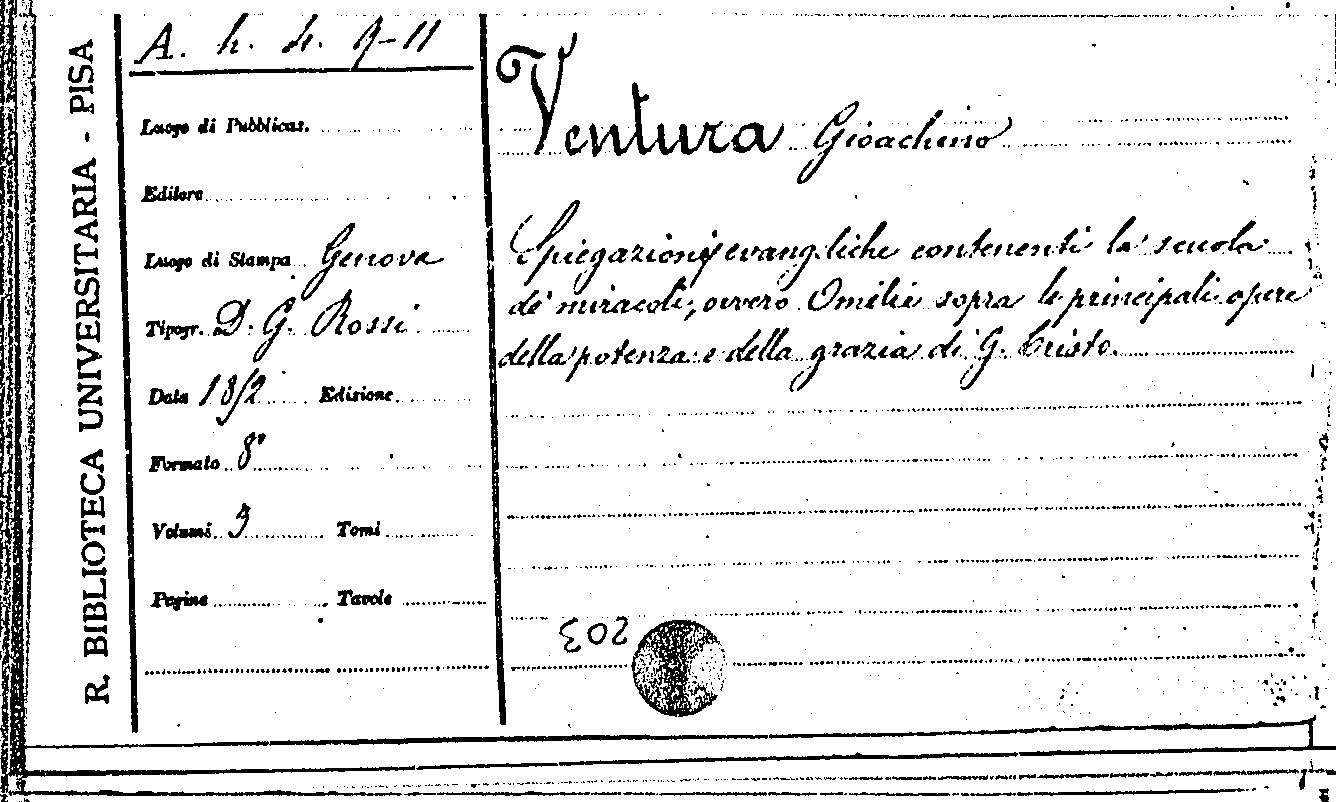 R. BIBLIOTECA UNIVERSITARIA - PISA
A. h. 4. 9-11
Luogo di Pubblicaz.
Editore
Luogo di Stampa Genova
Tipogr. D. G. Rossi
Data Edizione
Formato 8°
Volumi 3 Tomi
Pagine Tavole
Ventura Gioachino
Spiegazioni evangeliche contenenti la scuola
de' miracoli, ovvero Omilie sopra le principali opere
della potenza e della grazia di G. Cristo.
203